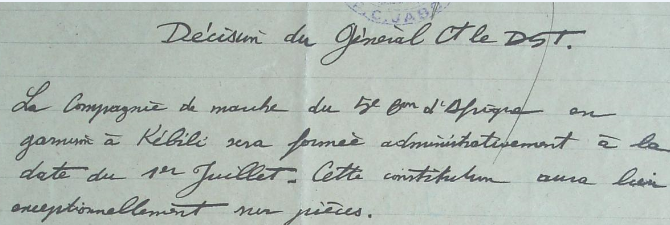 C. JAB
Décision du Général Ct le DST.
La Compagnie de marche du 5e Bon d'Afrique en
garnison à Kébili sera formée administrativement à la
date du 1er Juillet. Cette constitution aura lieu
exceptionnellement sur pièces.